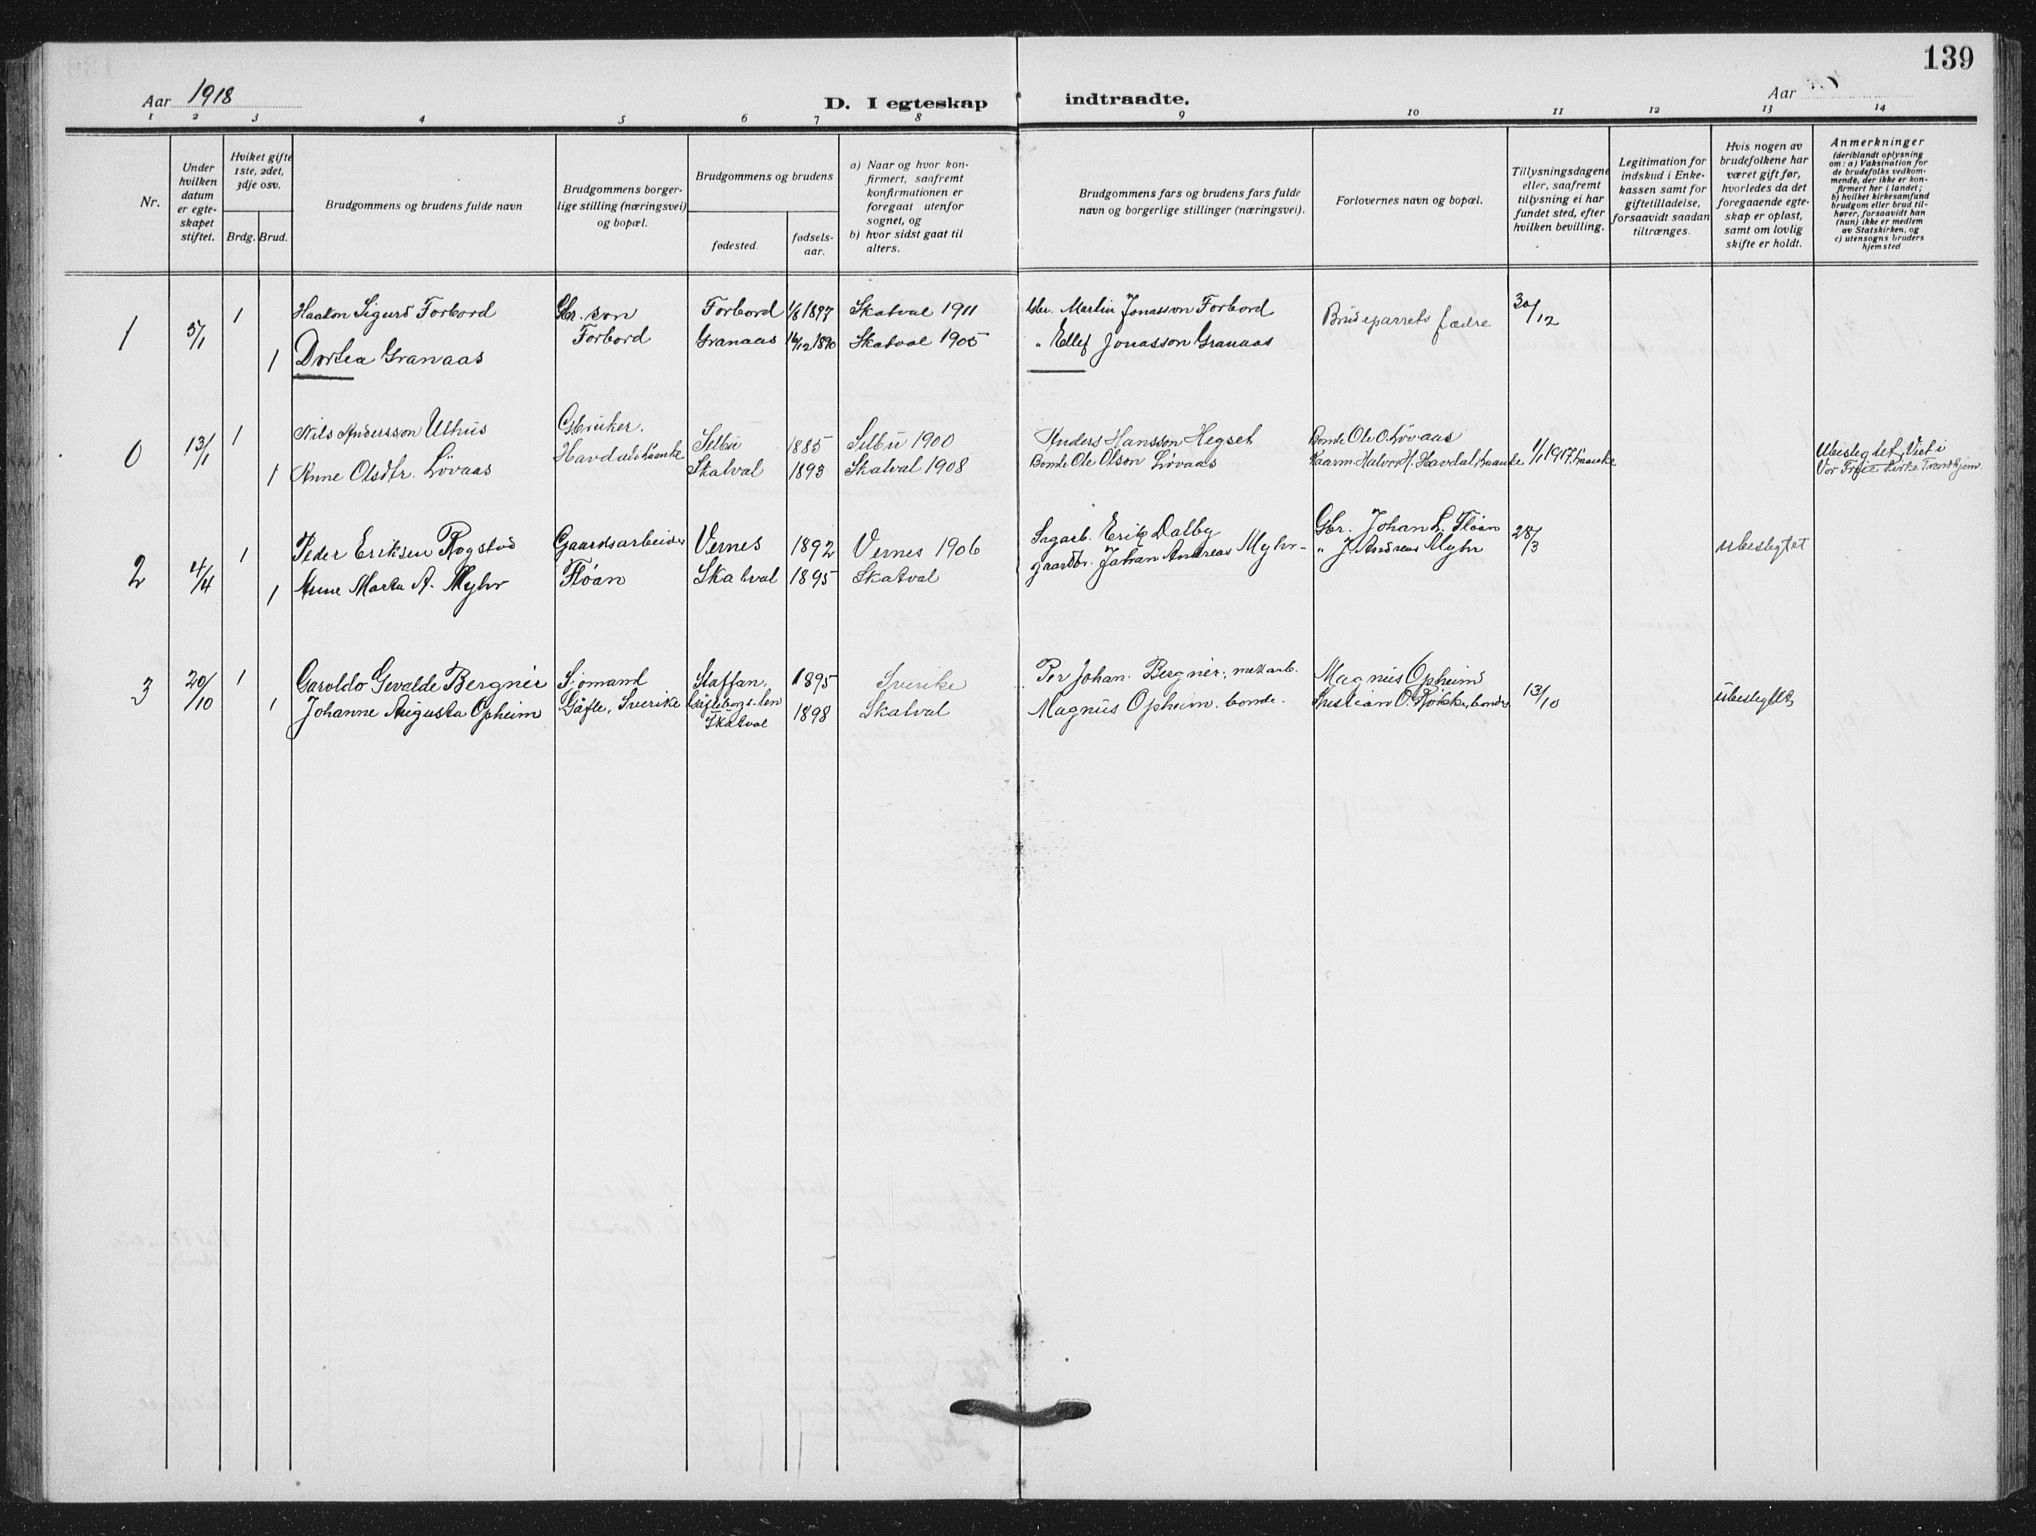 139
Aar 1918
D. I egteskap indtraadte.
Aar
1 2 3 4 5 6 7 8 9 10 11 12 13 14
Nr.
Under hvilken datum er egteskapet stiftet.
Hviket gifte 1ste, 2det, 3dje osv.
Brdg. Brud.
Brudgommens og brudens fulde navn
Brudgommens borgerlige stilling (næringsvei) og bopæl.
Brudgommens og brudens
fødested.
fødselsaar.
a) Naar og hvor konfirmert, saafremt konfirmationen er foregaat utenfor sognet, og
b) hvor sidst gaat til alters.
Brudgommens fars og brudens fars fulde navn og borgerlige stillinger (næringsvei).
Forlovernes navn og bopæl.
Tillysningsdagene eller, saafremt tillysning ei har fundet sted, efter hvilken bevilling.
Legitimation for indskud i Enkekassen samt for giftetilladelse, forsaavidt saadan tiltrænges.
Hvis nogen av brudefolkene har været gift før, hvorledes da det foregaaende egteskap er opløst, samt om lovlig skifte er holdt.
Anmerkninger
(deriblandt oplysning om: a) Vaksination for de brudefolks vedkommende, der ikke er konfirmert her i landet; b) hvilket kirkesamfund brudgom eller brud tilhører, forsaavidt han (hun) ikke er medlem av Statskirken, og c) utensogns bruders hjemsted
1 5/1 1 Haakon Sigurd Forbord Gbr. søn Forbord 1/8 1897 Skatval 1911 Martin Jonasson Forbord Brudeparrets fædre 30/12
1 Dortea Granaas Forbord Granaas 16/12 1890 Skatval 1905 " Ellef Jonasson Granaas
0 13/1 1 Nils Andersson Uthus Gbruker. Selbu 1885 Selbu 1900 Anders Hansson Hegset Bonde Ole O. Løvaas
1 Anne Olsdtr. Løvaas Skatval 1893 Skatval 1908 Bonde Ole Olson Løvaas 1/1 1917 Ubeslegtet, Viet i Vor Frue kirke Trondhjem
2 4/4 1 Peder Eriksen Rogstad Gaardsarbeider Vernes 1892 Vernes 1906 Sagarb. Erik Dalby Gbr. Johan L. Fløan 28/3 ubeslegtet
1 Anne Marta A. Myhr Fløan Skatval 1895 Skatval gaardbr. Johan Andreas Myhr- " J. Andreas Myhr
3 20/10 1 Garoldo Gevalde Bergner Sjømand Staffan, 1895 Sverike Per Johan Bergner, Magnus Opheim 13/10 ubeslegtet
1 Johanne Augusta Opheim Gäfle, Sverike Gäfleborgs-len Skatval 1898 Skatval Magnus Opheim. bonde. Kristian O. Røkke, bonde